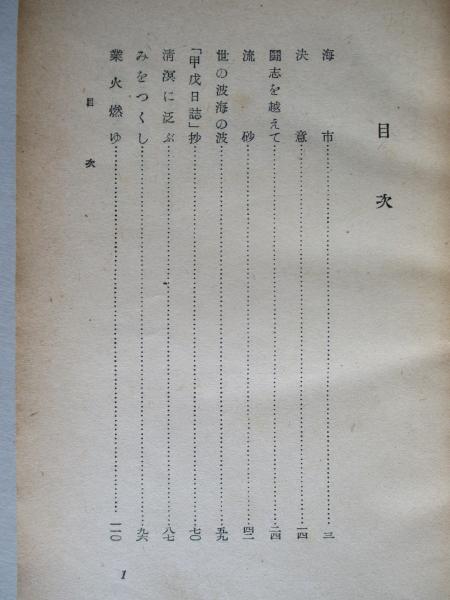 目次
海市……三
決意……一四
闘志を越えて……二四
流砂……四二
世の波海の波……五九
「甲戊日誌」抄……七〇
淸溟に泛ぶ……八七
みをつくし……九六
業火燃ゆ……一一〇
目次
1